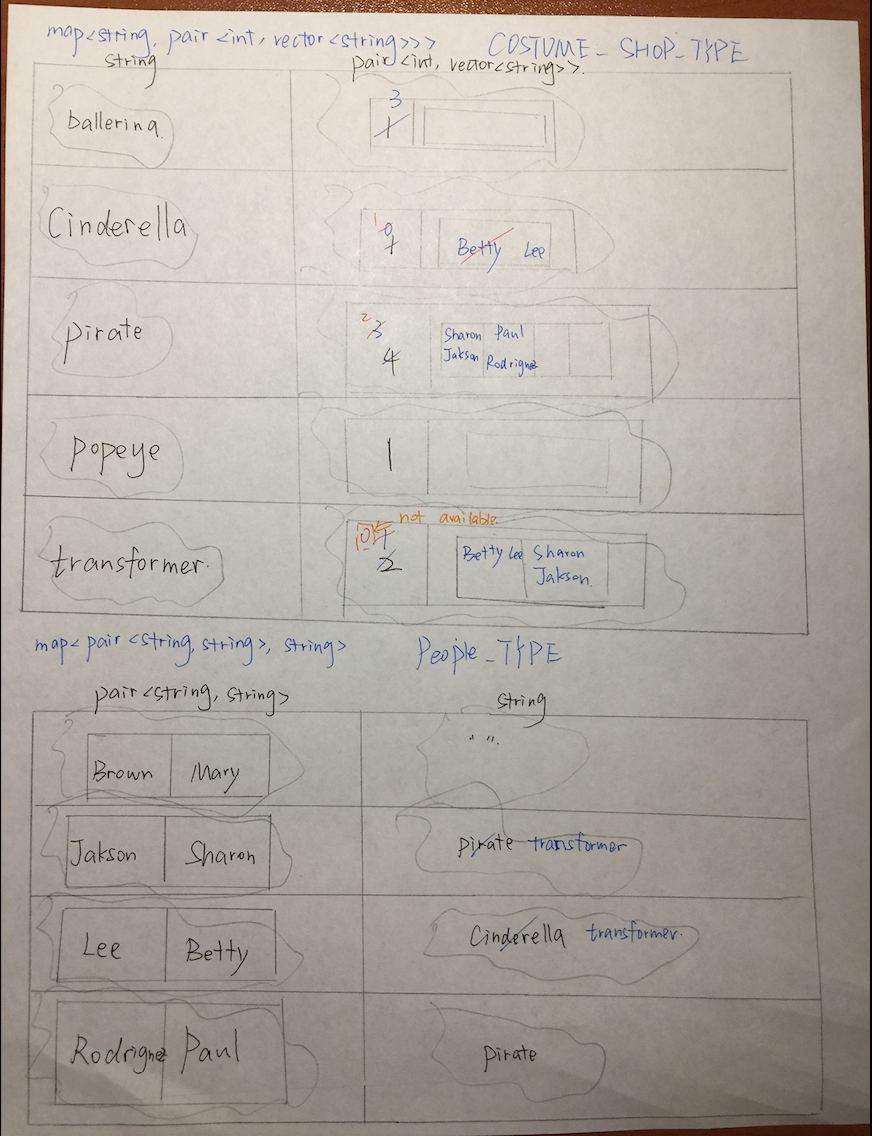 map<string, pair<int, vector<string>>> COSTUME_SHOP_TYPE
string pair<int, vector<string>>.
ballerina. 3 1
Cinderella 1 0 1 Betty Lee
pirate 2 3 4 Sharon Paul
Jakson Rodrignez
popeye 1
not available.
transformer. 0 1 2 Betty Lee Sharon
Jakson.
map<pair<string, string>, string> People_TYPE
pair<string, string> string
Brown Mary " ".
Jakson Sharon pirate transformer
Lee Betty Cinderella transformer.
Rodrignez Paul pirate